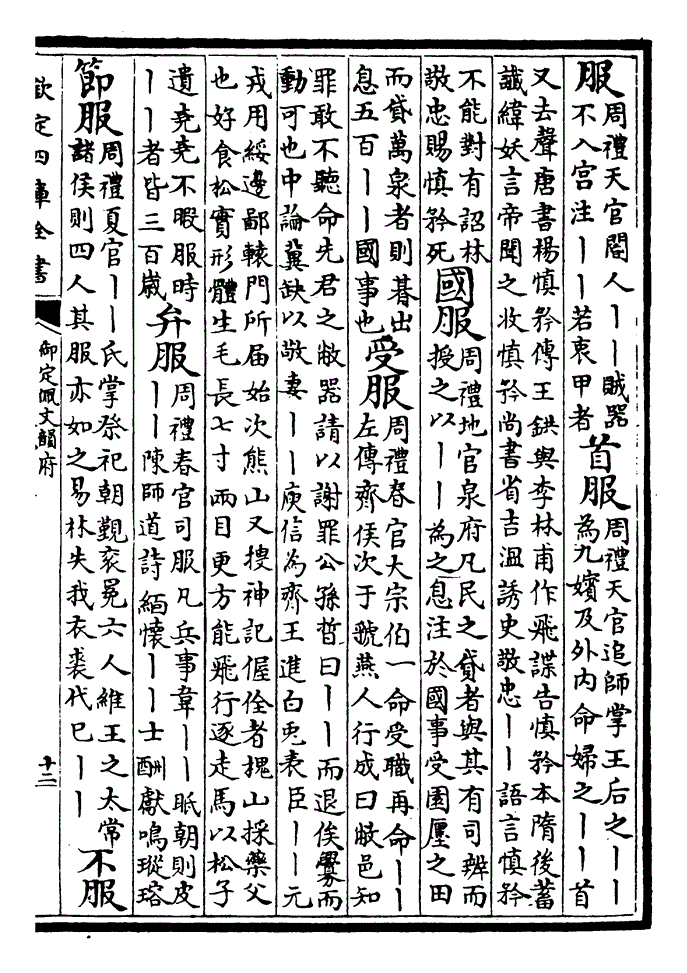 服周禮天官閽人丨丨賊器
不入宮注丨丨若衷甲者
首服周禮天官追師掌王后之丨丨
為九嬪及外內命婦之丨丨首
又去聲唐書楊慎矜傳王鉷與李林甫作飛諜告慎矜本隋後蓄
讖緯妖言帝聞之收慎矜尚書省吉溫誘史敬忠丨丨語言慎矜
不能對有詔林
敬忠賜慎矜死
國服周禮地官泉府凡民之貸者與其有司辨而
授之以丨丨為之息注於國事受園廛之田
而貸萬泉者則朞出
息五百丨丨國事也
受服周禮春官大宗伯一命受職再命丨丨
左傳齊侯次于虢燕人行成曰敝邑知
罪敢不聽命先君之敝器請以謝罪公孫晳曰丨丨而退俟釁而
動可也中論冀缺以敬妻丨丨庾信為齊王進白兎表臣丨丨元
戎用綏邊鄙轅門所届始次熊山又搜神記偓佺者槐山採藥父
也好食松實形體生毛長七寸兩目更方能飛行逐走馬以松子
遺堯堯不暇服時
丨丨者皆三百歲
弁服周禮春官司服凡兵事韋丨丨眡朝則皮
丨丨陳師道詩緬懷丨丨士酬獻鳴瑽瑢
節服周禮夏官丨丨氏掌祭祀朝覲衮冕六人維王之太常
諸侯則四人其服亦如之易林失我衣裘代已丨丨
不服
欽定四庫全書
御定佩文韻府
十二